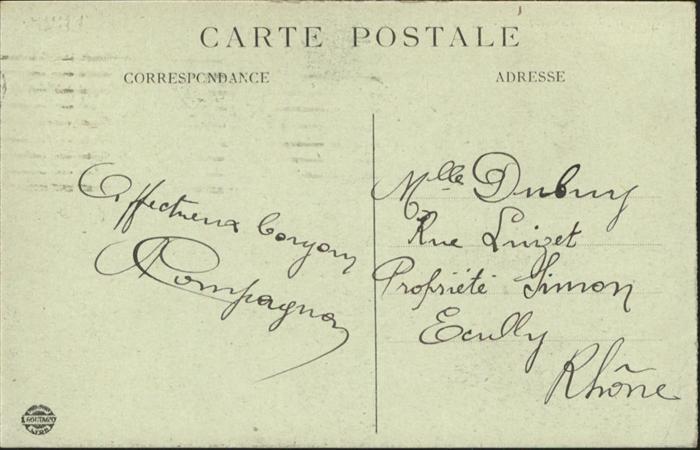 CARTE POSTALE
CORRESPONDANCE
ADRESSE
Affectueux bonjour
Compagnon
Mlle Dubuy
Rue Luizet
Propriété Simon
Ecully
Rhône